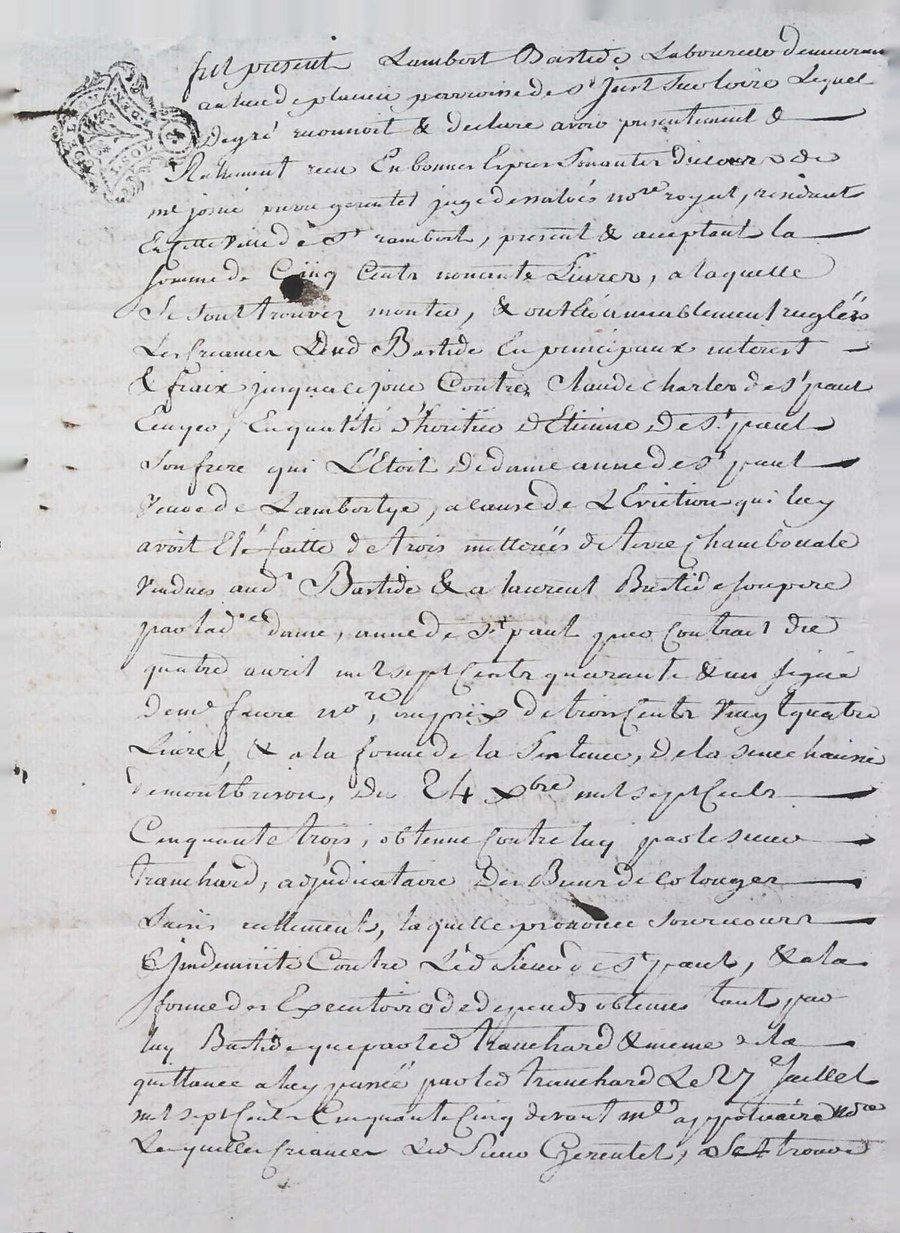 fut présent Lambert Bastide Laboureur demeuran
au lieu de plancu parroisse de st Just sur loire Lequel
De gré reconnoit & declare avoir présentement &
Réellement receu En bonnes Especes Sonantes du cours de
me josué pierre gerentet juge des valvés nore royal, residant
En cette ville de St rambert, present & acceptant la
somme de Cinq Cents nonante Livres, a laquelle
se sont trouvez montée, & ont été amiablement reglés
Les Creances Dud Bastide En principaux interest
& fraix jusqu'a ce jour Contre Claude Charles de st paul
Ecuyer, En qualité d'héritier d'Etienne De St paul
son frere qui L'Etoit De dame anne de st paul
veuve de Lambertye, a cause de L'Eviction qui luy
avoit Eté faitte de trois metterées de terre Chambonale
vendues aud Bastide & a laurent Bastide son pere
par lad dame, anne de St paul par Contrait du
quatre avril mil sept Cents quarante & un signé
De me faure nore, au prix de trois Cents vingt quatre
Livres, & a la forme de la Sentence, De la senechaussé
de montbrison, du 24 xbre mil sept Cents
Cinquante trois, obtenue Contre luy par le sieur
tranchard, adjudicataire Des Biens de colonges
saisis reellement, laquelle prononce son recours
& Jndemnité Contre Led Sieur de st paul, & a la
forme des Executoires de depends obtenus tant par
luy Bastide que par led tranchard & meme de la
quittance a luy passée par led tranchard Le 27 Juillet
mil sept Cents Cinquante Cinq devant me appotuaire nore
Lesquelles Creances Led Sieur Gerentet, a Se trouve